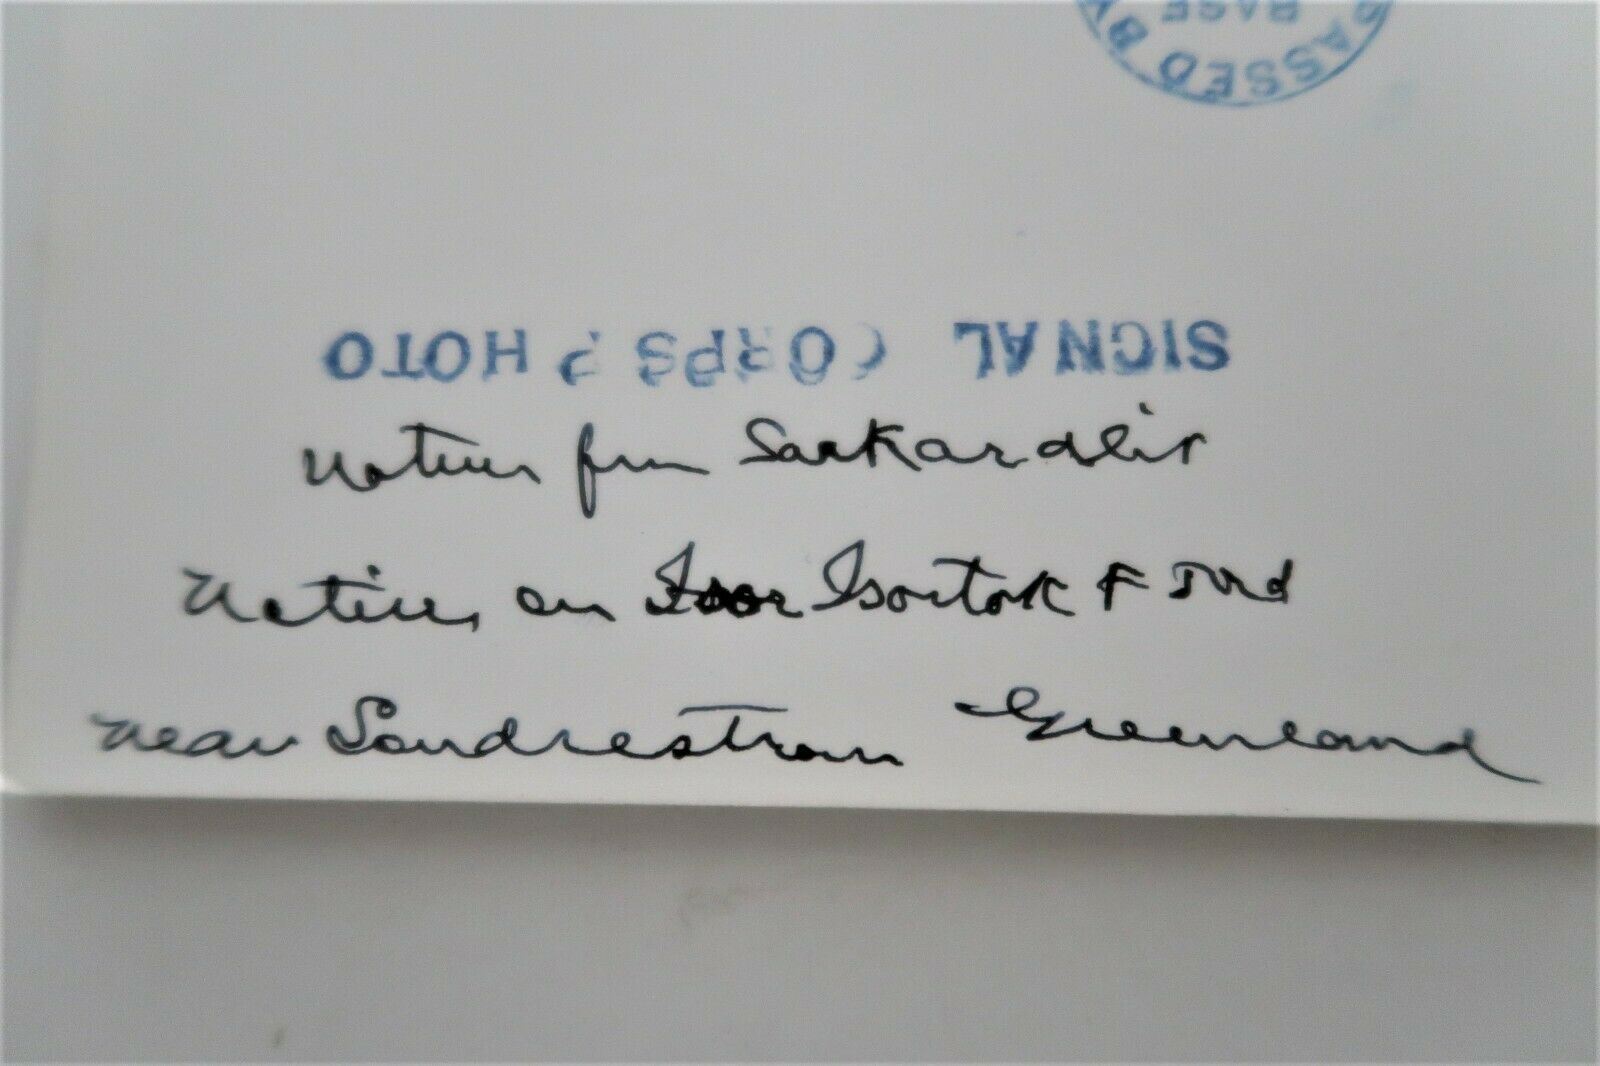 PASSED BY
BASE
SIGNAL CORPS PHOTO
Natives from Sarkardlit
Natives on Isortok FJord
near Sondrestrom Greenland